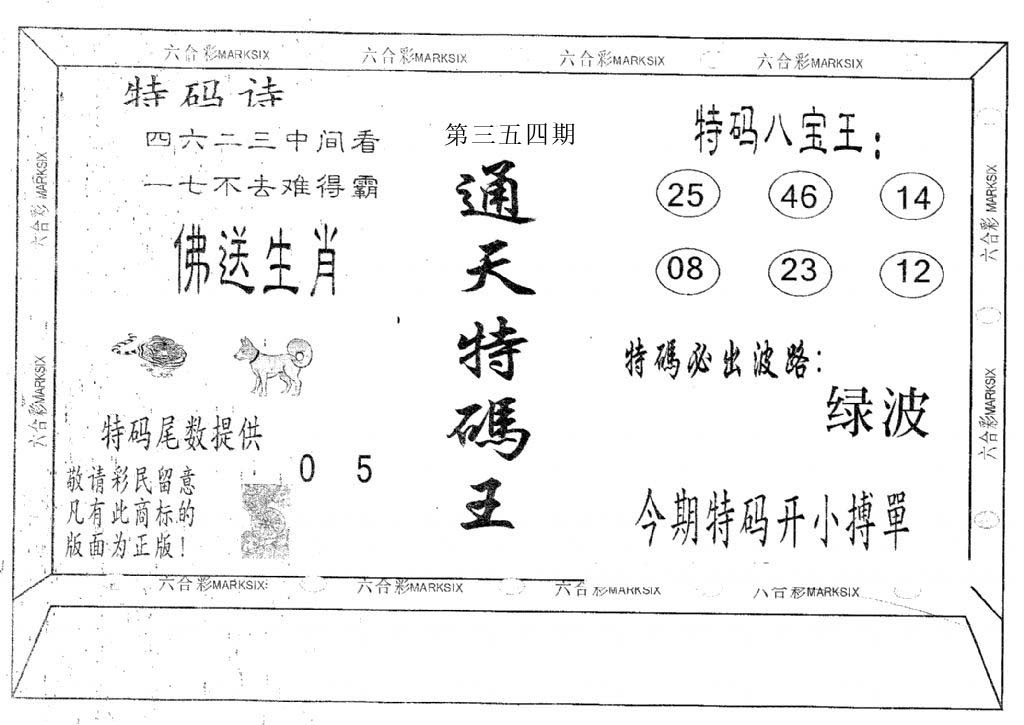 六合彩MARKSIX 六合彩MARKSIX 六合彩MARKSIX 六合彩MARKSIX
特码诗
四六二三中间看
一七不去难得霸
佛送生肖
特码尾数提供
0 5
敬请彩民留意
凡有此商标的
版面为正版！
第三五四期
通天特碼王
特码八宝王：
25 46 14
08 23 12
特碼必出波路：
绿波
今期特码开小搏單
六合彩MARKSIX
六合彩MARKSIX
六合彩MARKSIX
六合彩MARKSIX
六合彩MARKSIX 六合彩MARKSIX 六合彩MARKSIX 六合彩MARKSIX